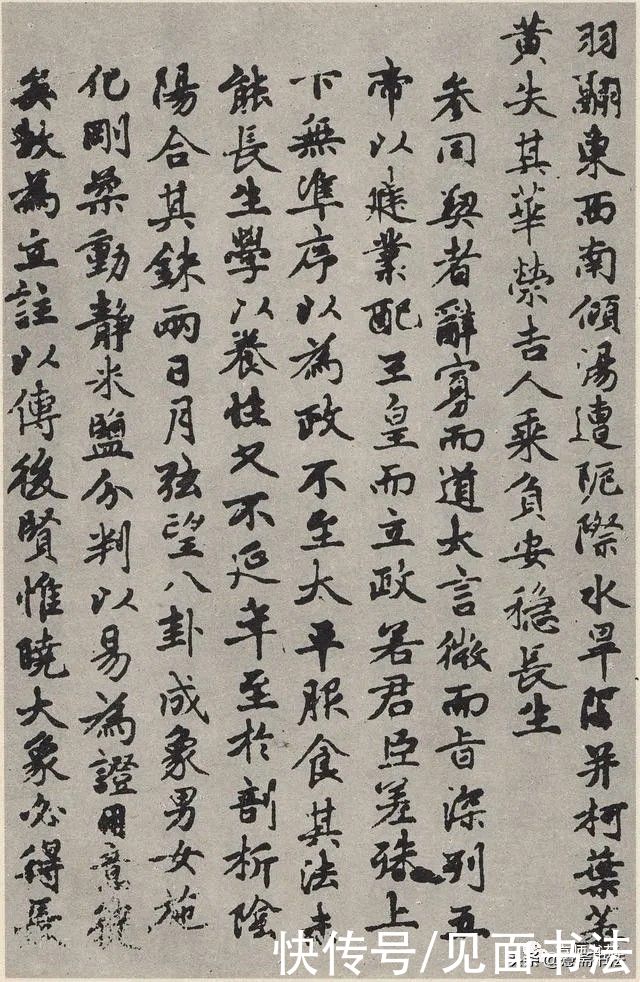 羽翮東西南傾湯遭阨際水旱隔并柯葉萎
黄失其華榮吉人乘負安穩長生
参同契者辭寡而道太言微而旨深列五
帝以建業配三皇而立政若君臣差殊上
下無準序以為政不至大平服食其法未
能長生學以養性又不延年至於剖析陰
陽合其銖兩日月弦望八卦成象男女施
化剛柔動静米鹽分判以易為證用意健
矣故為立註以傳後賢惟曉大象必得長
快传号/见面书法